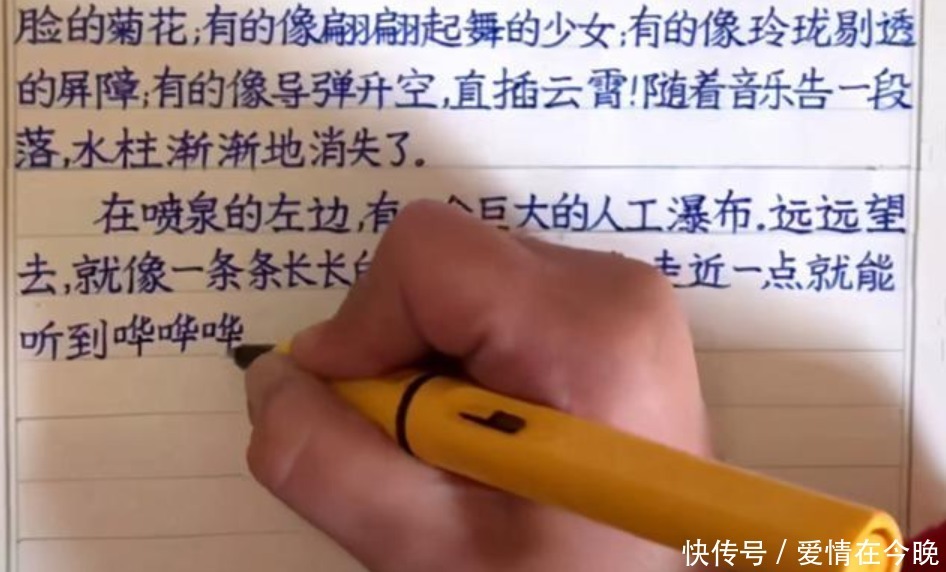 脸的菊花;有的像翩翩起舞的少女;有的像玲珑剔透
的屏障;有的像导弹升空,直插云霄!随着音乐告一段
落,水柱渐渐地消失了.
在喷泉的左边,有一个巨大的人工瀑布.远远望
去,就像一条条长长的 走近一点就能
听到哗哗哗
快传号 / 爱情在今晚